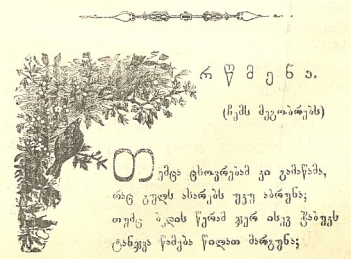 რ წ მ ე ნ ა.
(ჩემს მეგობრებს)
თუმცა ცხოვრებამ კი გამაწამა,
რაც გულს ახარებს უკუ აბრუნა;
თუმც ბედის წერამ ჯერ ისევ ჭაბუკს
ტანჯვა წამება წილათ მარგუნა;